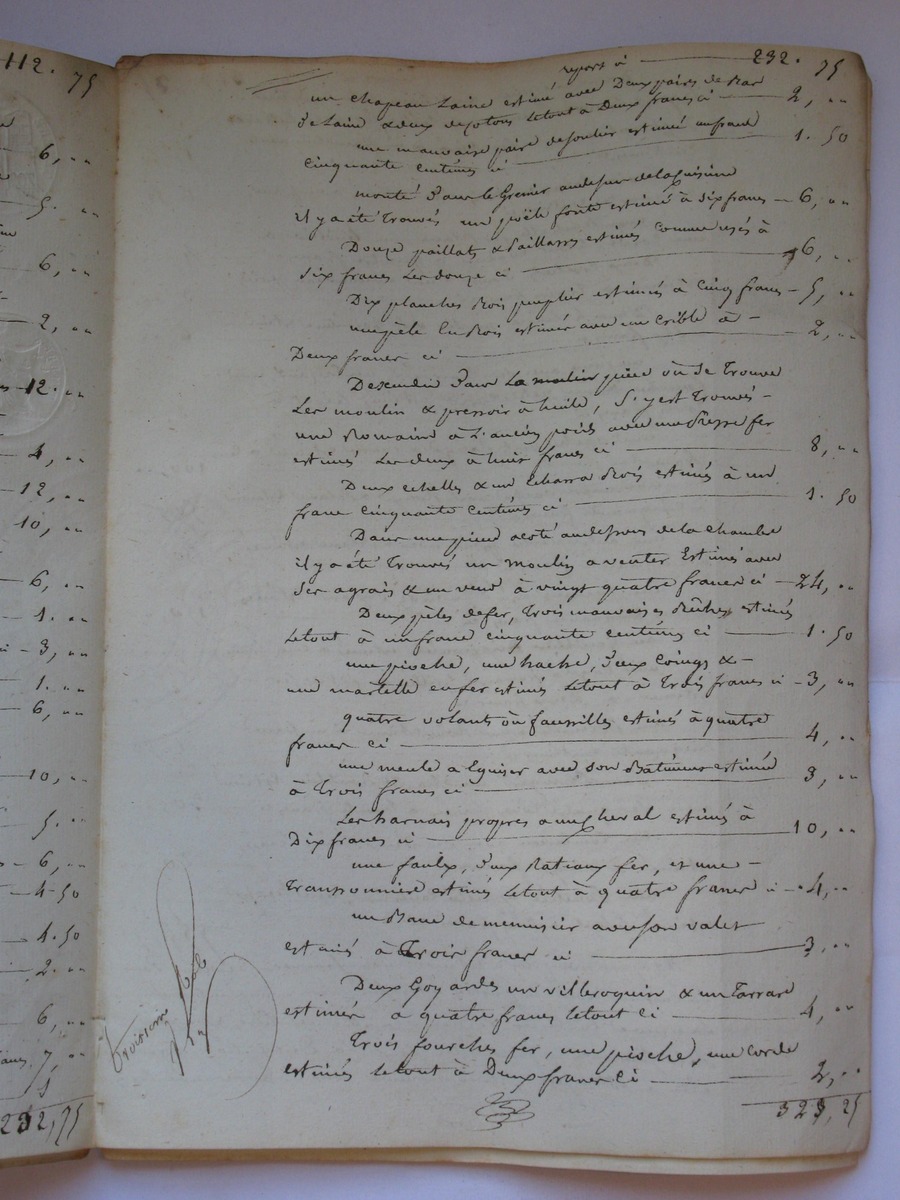 112. 75
6, ..
5. ..
6, ..
2, ..
12. ..
4, ..
12, ..
10, ..
6, ..
1. ..
3, ..
1. ..
6, ..
10, ..
5. ..
6, ..
4-50
4.50
2. ..
6, ..
7, ..
1
232,75
report à 232. 75
un chapeau Laine estimé avec Deux paires de Bas
De Laine & deux de Cotons Letout à Deux francs ci 2, ..
une mauvaise paire de soulier estimé un franc
Cinquante centimes ci 1. 50
monté Dans le Grenier audessus de la Cuisine
il y a été Trouvés un poële fonte estimé à Six francs 6, ..
Douze paillats & paillasses estimés Comme usés à
Six francs Les douze ci 6, ..
Dix planches Bois peuplier estimés à Cinq francs 5, ..
une pèle En Bois estimée avec un Crible à
Deux francs ci 2, ..
Descendu Dans La pièce où Se Trouve
Les moulin & pressoir à huile, S'y est Trouvés
une Romaine à L'ancien poids avec une Presse fer
estimés Les deux à huit francs ci 8, ..
Deux echelles & un Bois estimés à un
franc Cinquante Centimes ci 1. 50
Dans une pièce acoté audessous de la Chambre
il y a été Trouvés un moulin a venter Estimé avec
Ses agrais & un à vingt quatre francs ci 24, ..
Deux pèles de fer, Trois mauvaises Bêches estimés
Letout à un franc cinquante centimes ci 1. 50
une pioche, une hache, Deux Coings &
une martelle en fer estimés Letout à Trois francs ci 3, ..
quatre volants où faussilles estimés à quatre
francs ci 4, ..
une meule a Eguiser avec son Batiment estimée
à Trois francs ci 3, ..
Les harnais propres a un Cheval estimés à
Dix francs ci 10, ..
une faulx, Deux Rateaux fer, et une
estimés Letout à quatre francs ci 4, ..
un Banc de menuisier avec son valet
estimés à Trois francs ci 3, ..
Deux Goyardes un villeroquin & un Tarrare
estimés à quatre francs Letout Ci 4, ..
Trois fourches fer, une pioche, une Corde
estimés Letout à Deux francs Ci 2, ..
323, 25
troisieme Rôle